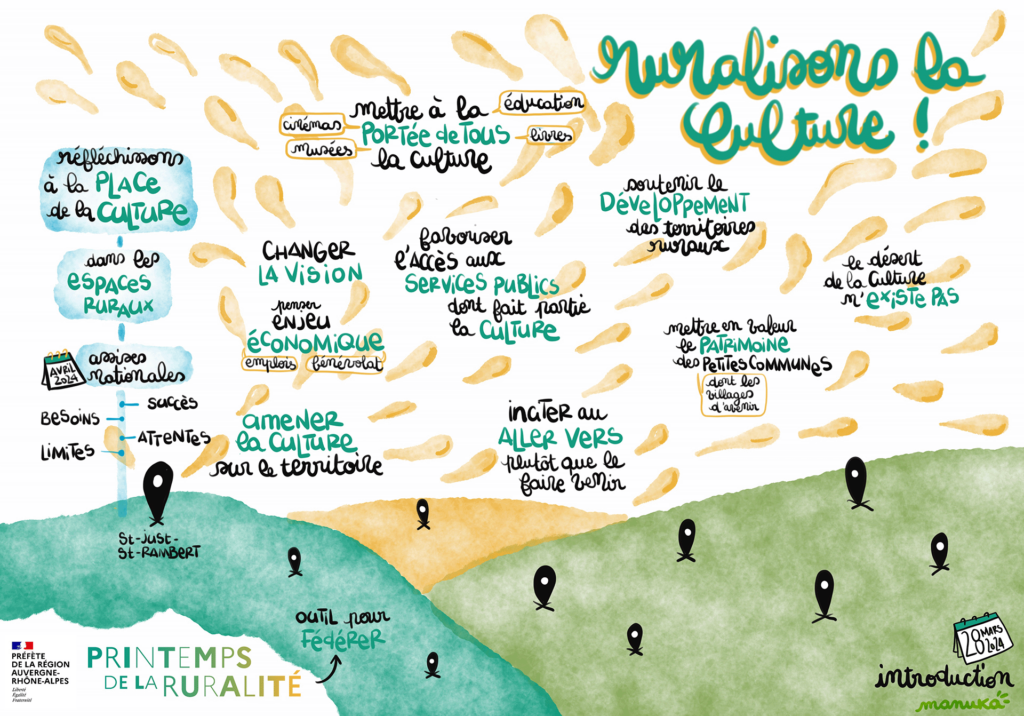 ruralisons la
Culture !
mettre à la
PORTÉE de TOUS
la culture
cinémas
musées
éducation
livres
réfléchissons
à la PLACE
de la CULTURE
dans les
ESPACES
RURAUX
AVRIL
2024
assises
nationales
SUCCÈS
BESOINS
ATTENTES
LIMITES
CHANGER
LA VISION
penser
ENJEU
ÉCONOMIQUE
emplois
bénévolat
favoriser
l'ACCÈS AUX
SERVICES PUBLICS
dont fait partie
la CULTURE
soutenir le
DÉVELOPPEMENT
des territoires
ruraux
le désert
de la Culture
n'EXISTE PAS
mettre en valeur
le PATRIMOINE
des PETITES COMMUNES
dont les
villages
d'avenir
AMENER
la CULTURE
sur le territoire
inciter au
ALLER VERS
plutôt que le
faire venir
St-JUST-
St-RAMBERT
OUTIL pour
FÉDÉRER
PRÉFÈTE
DE LA RÉGION
AUVERGNE-
RHÔNE-ALPES
Liberté
Égalité
Fraternité
PRINTEMPS
DE LA RURALITÉ
28 MARS
2024
introduction
manuka